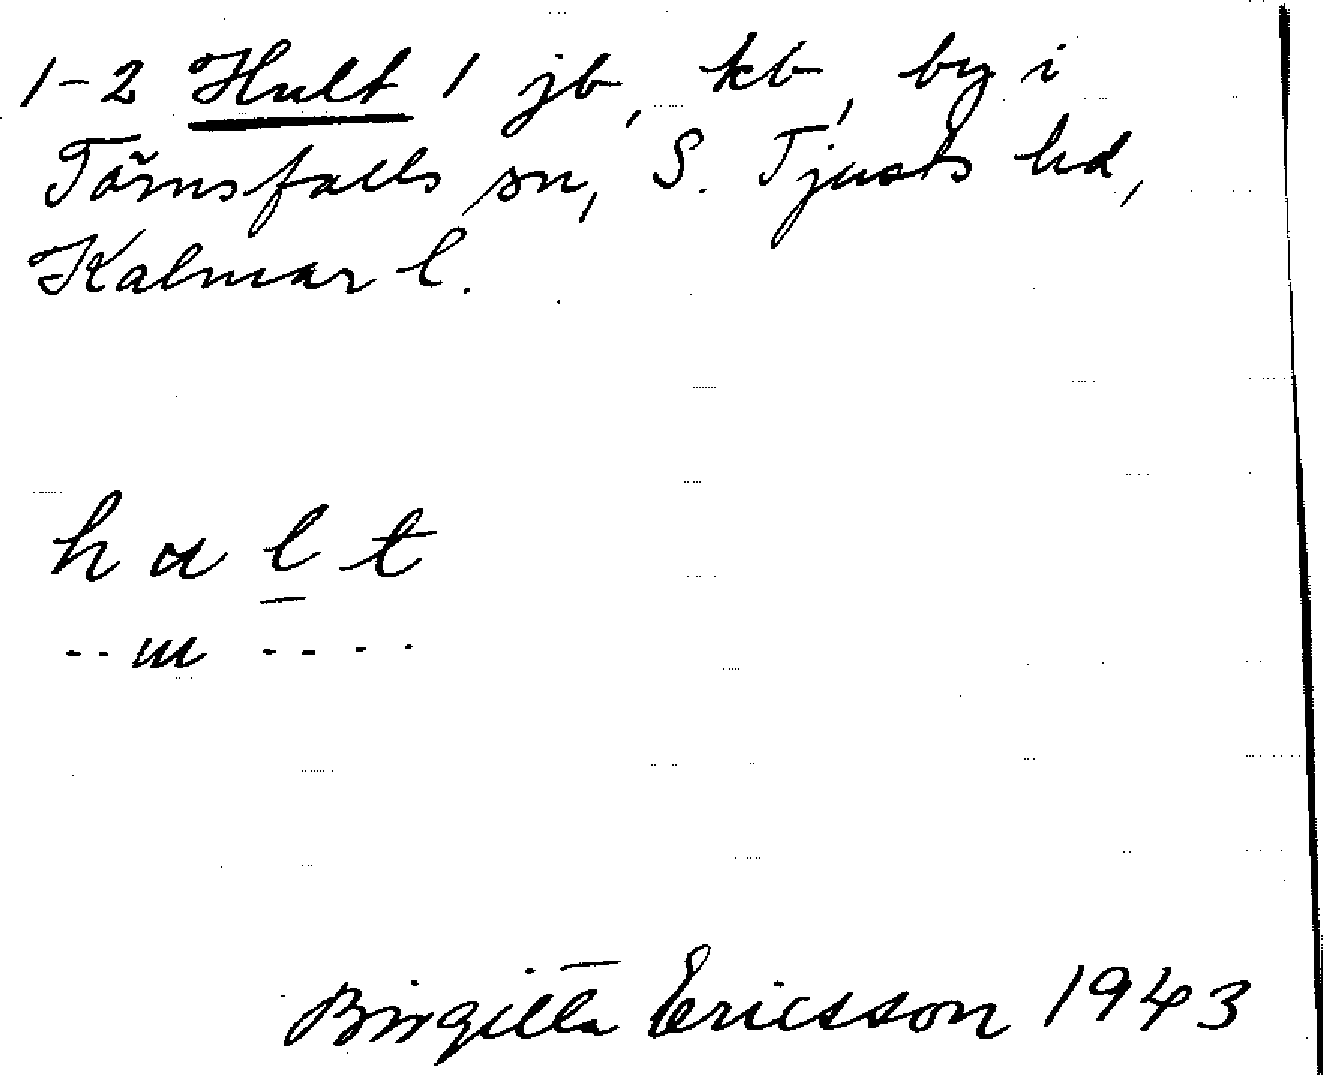 1-2 Hult 1 jb, kb, by i
Törnsfalls sn, S. Tjusts hd,
Kalmar l.
h α l t
-- ɯ ----
Birgitta Ericsson 1943